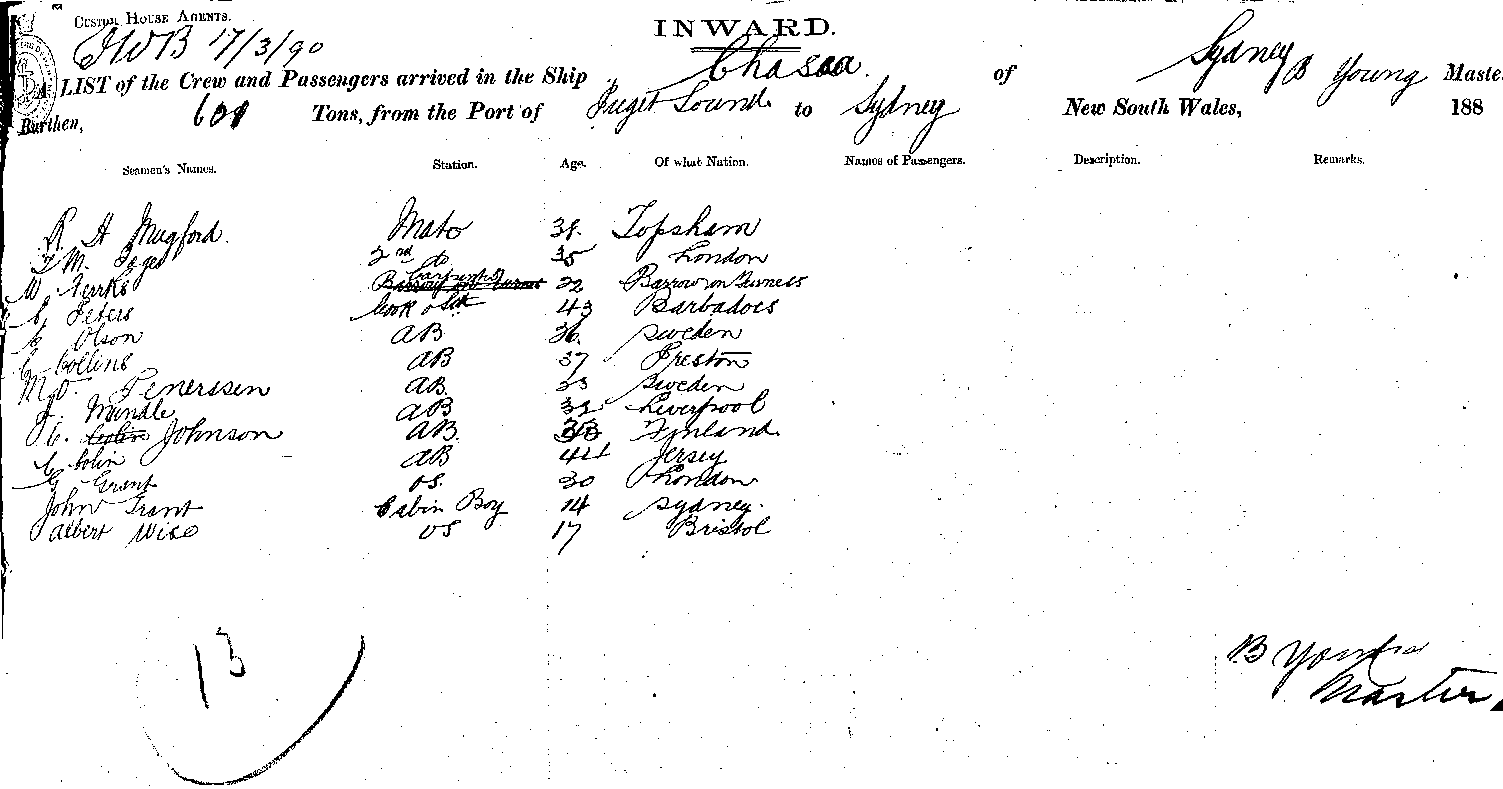 CUSTOM HOUSE AGENTS.
INWARD.
17/3/90
A LIST of the Crew and Passengers arrived in the Ship Chasca of Sydney B Young Master
Burthen, 601 Tons, from the Port of Puget Sound to Sydney New South Wales, 188
Seamen's Names. Station. Age. Of what Nation. Names of Passengers. Description. Remarks.
R H Mugford. Mate 38. Topsham
M. 2nd do 35 London
W. Carpenter 22 Barrow on Furness
C Peters Cook & Std 43 Barbadoes
C Olson AB 36. Sweden
C Collins AB 37 Preston
M. O. Tenerssen AB 23 Sweden
J. Mundle AB 32 Liverpool
C. Colin Johnson AB. 33 Finland
C Colin AB 44 Jersey
G Grant OS. 30 London
John Grant Cabin Boy 14 Sydney.
Albert Wise OS 17 Bristol
13
B Young
Master